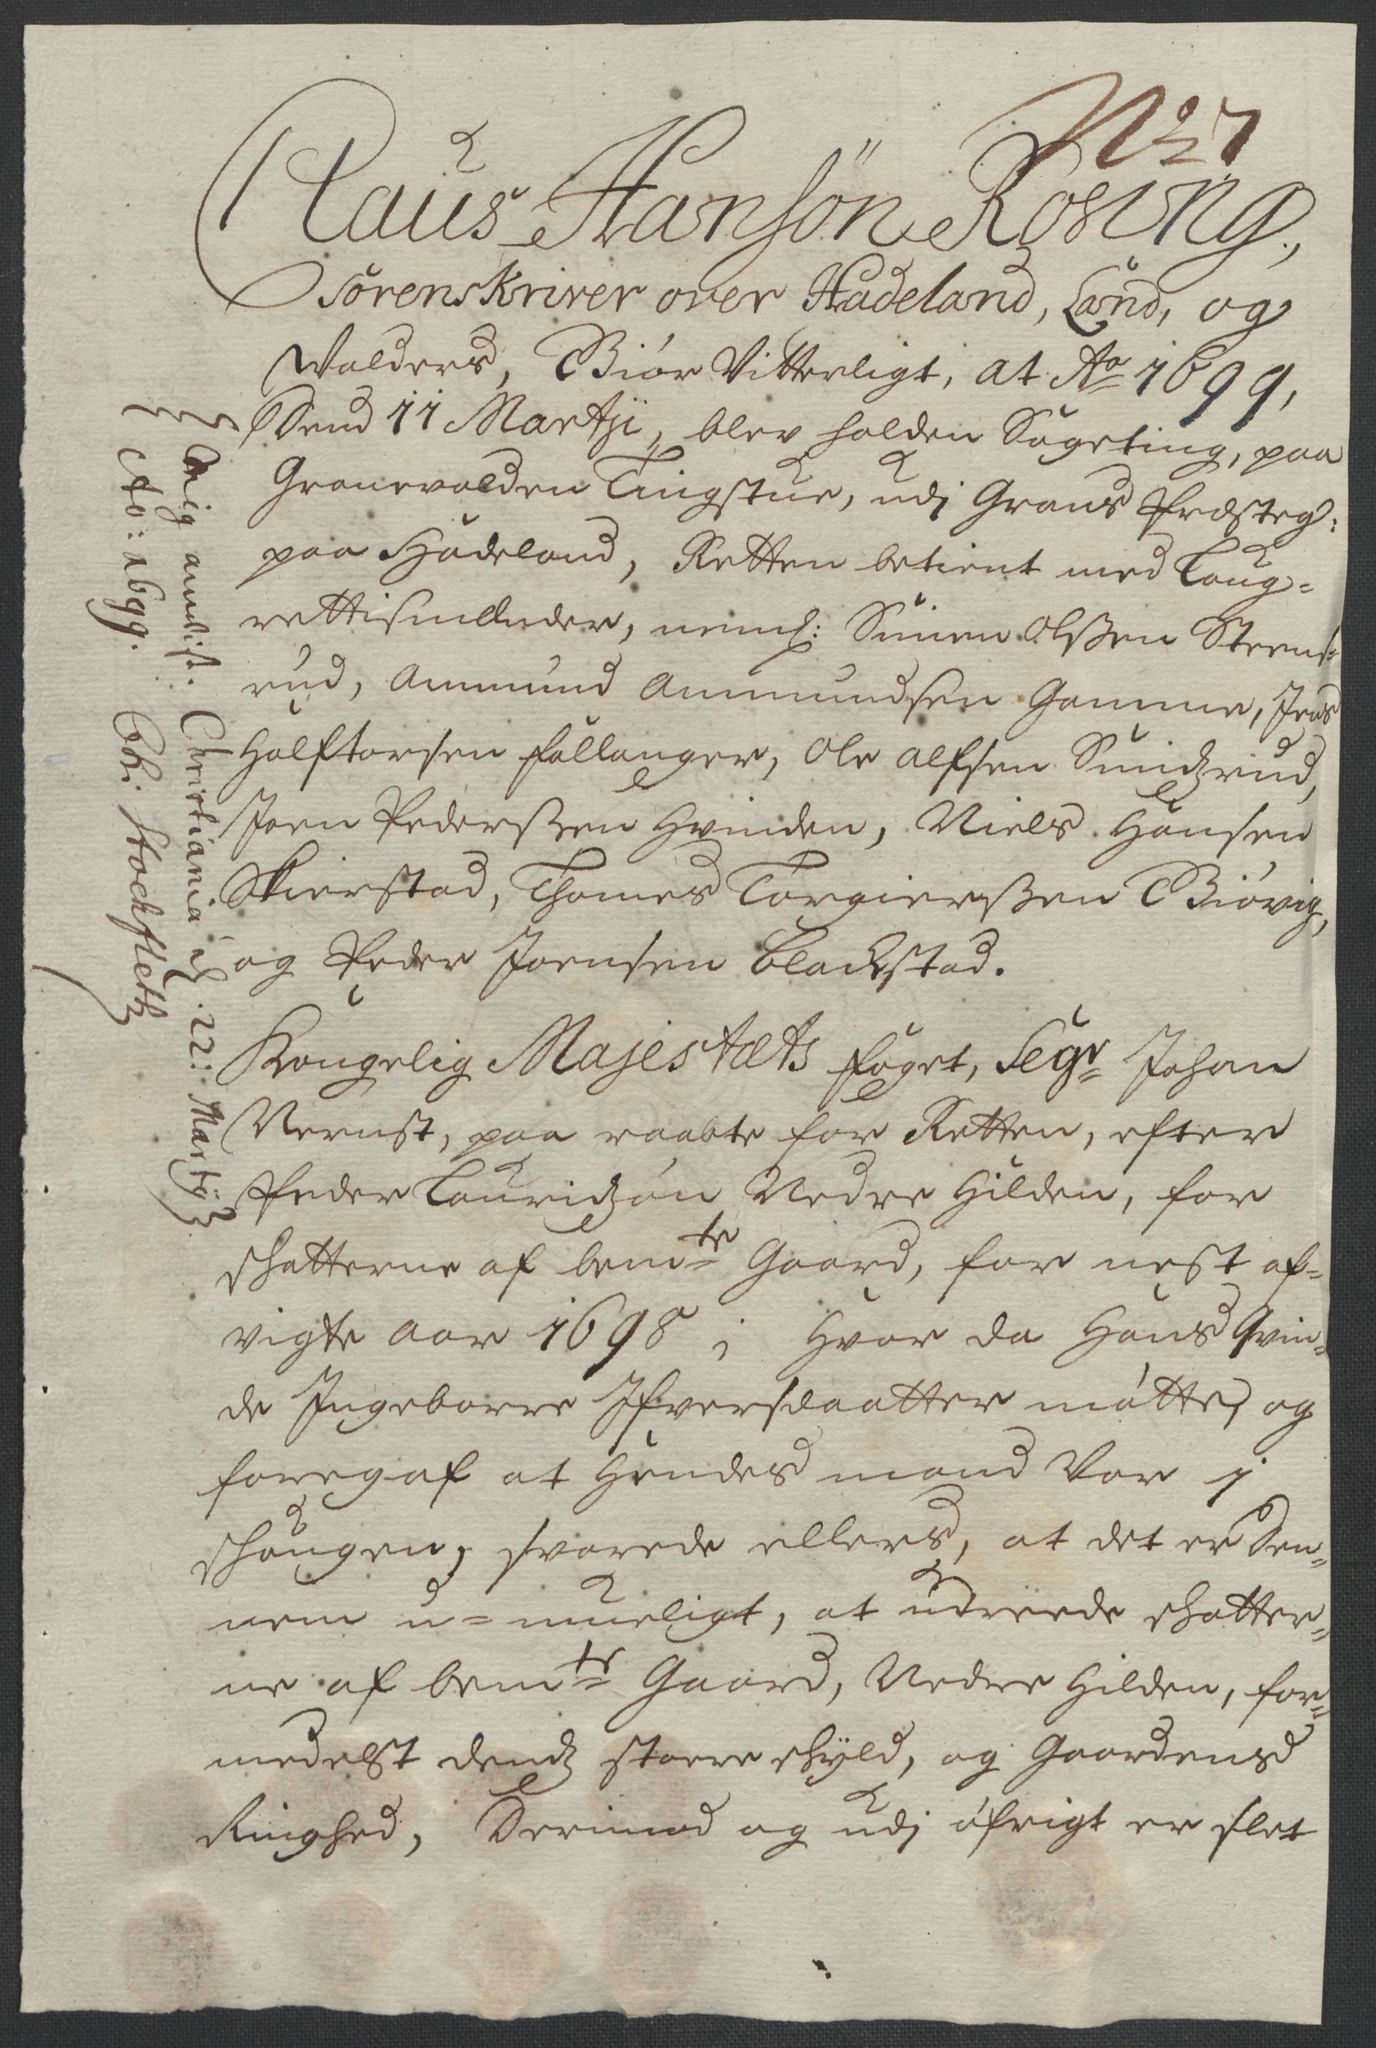 No 7
Claus Hansøn Rosing,
Sorenskriver over Hadeland, Land, og
Walders, Giør Vitterligt, at Ao 1699,
Dend 11 Martji, blev holden Sageting, paa
Granevolden Tingstue, udj Grans Præstegl:
paa Hadeland, Retten betient med Laug-
rettismænder, nemlig: Simen Olßen Steens-
rud, Ammund Ammundsen Gamme, Jens
Halftorsen Fallanger, Ole Alfsen Sundzrud,
Joen Pederßen Hvinden, Niels Hansen
Skierstad, Thomes Torgierßen Giøvig,
og Peder Joensen Blackstad.
Kongelig Majestæts Foget, Segr Johan
Vernst, paa raabte for Retten, efter
Peder Lauridzøn Nedre Hilden, for
Skatterne af bemte Gaard, for nest af-
vigte Aar 1698; Hvor da Hans Qvin-
de Ingeborre Ifversdaatter møtte, og
foregaf at Hendes mand Var j
Skougen, svarede ellers, at det er Den-
nem u-mueligt, at udreede Skatter-
ne af bemte Gaard, Nedre Hilden, for-
medelst dends store Skyld, og Gaardens
Ringhed, Derimod og udj øfrigt er slet
Mig anvist. Christiania d. 22: Martij
Ao: 1699.
Ch: Stockfleth